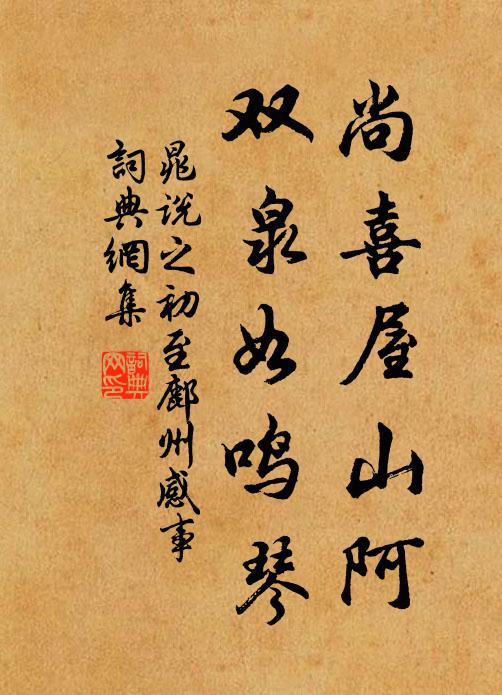 尚喜屋山阿
双泉如鸣琴
晁说之初至鄜州感事
詞典網集
詞典網印